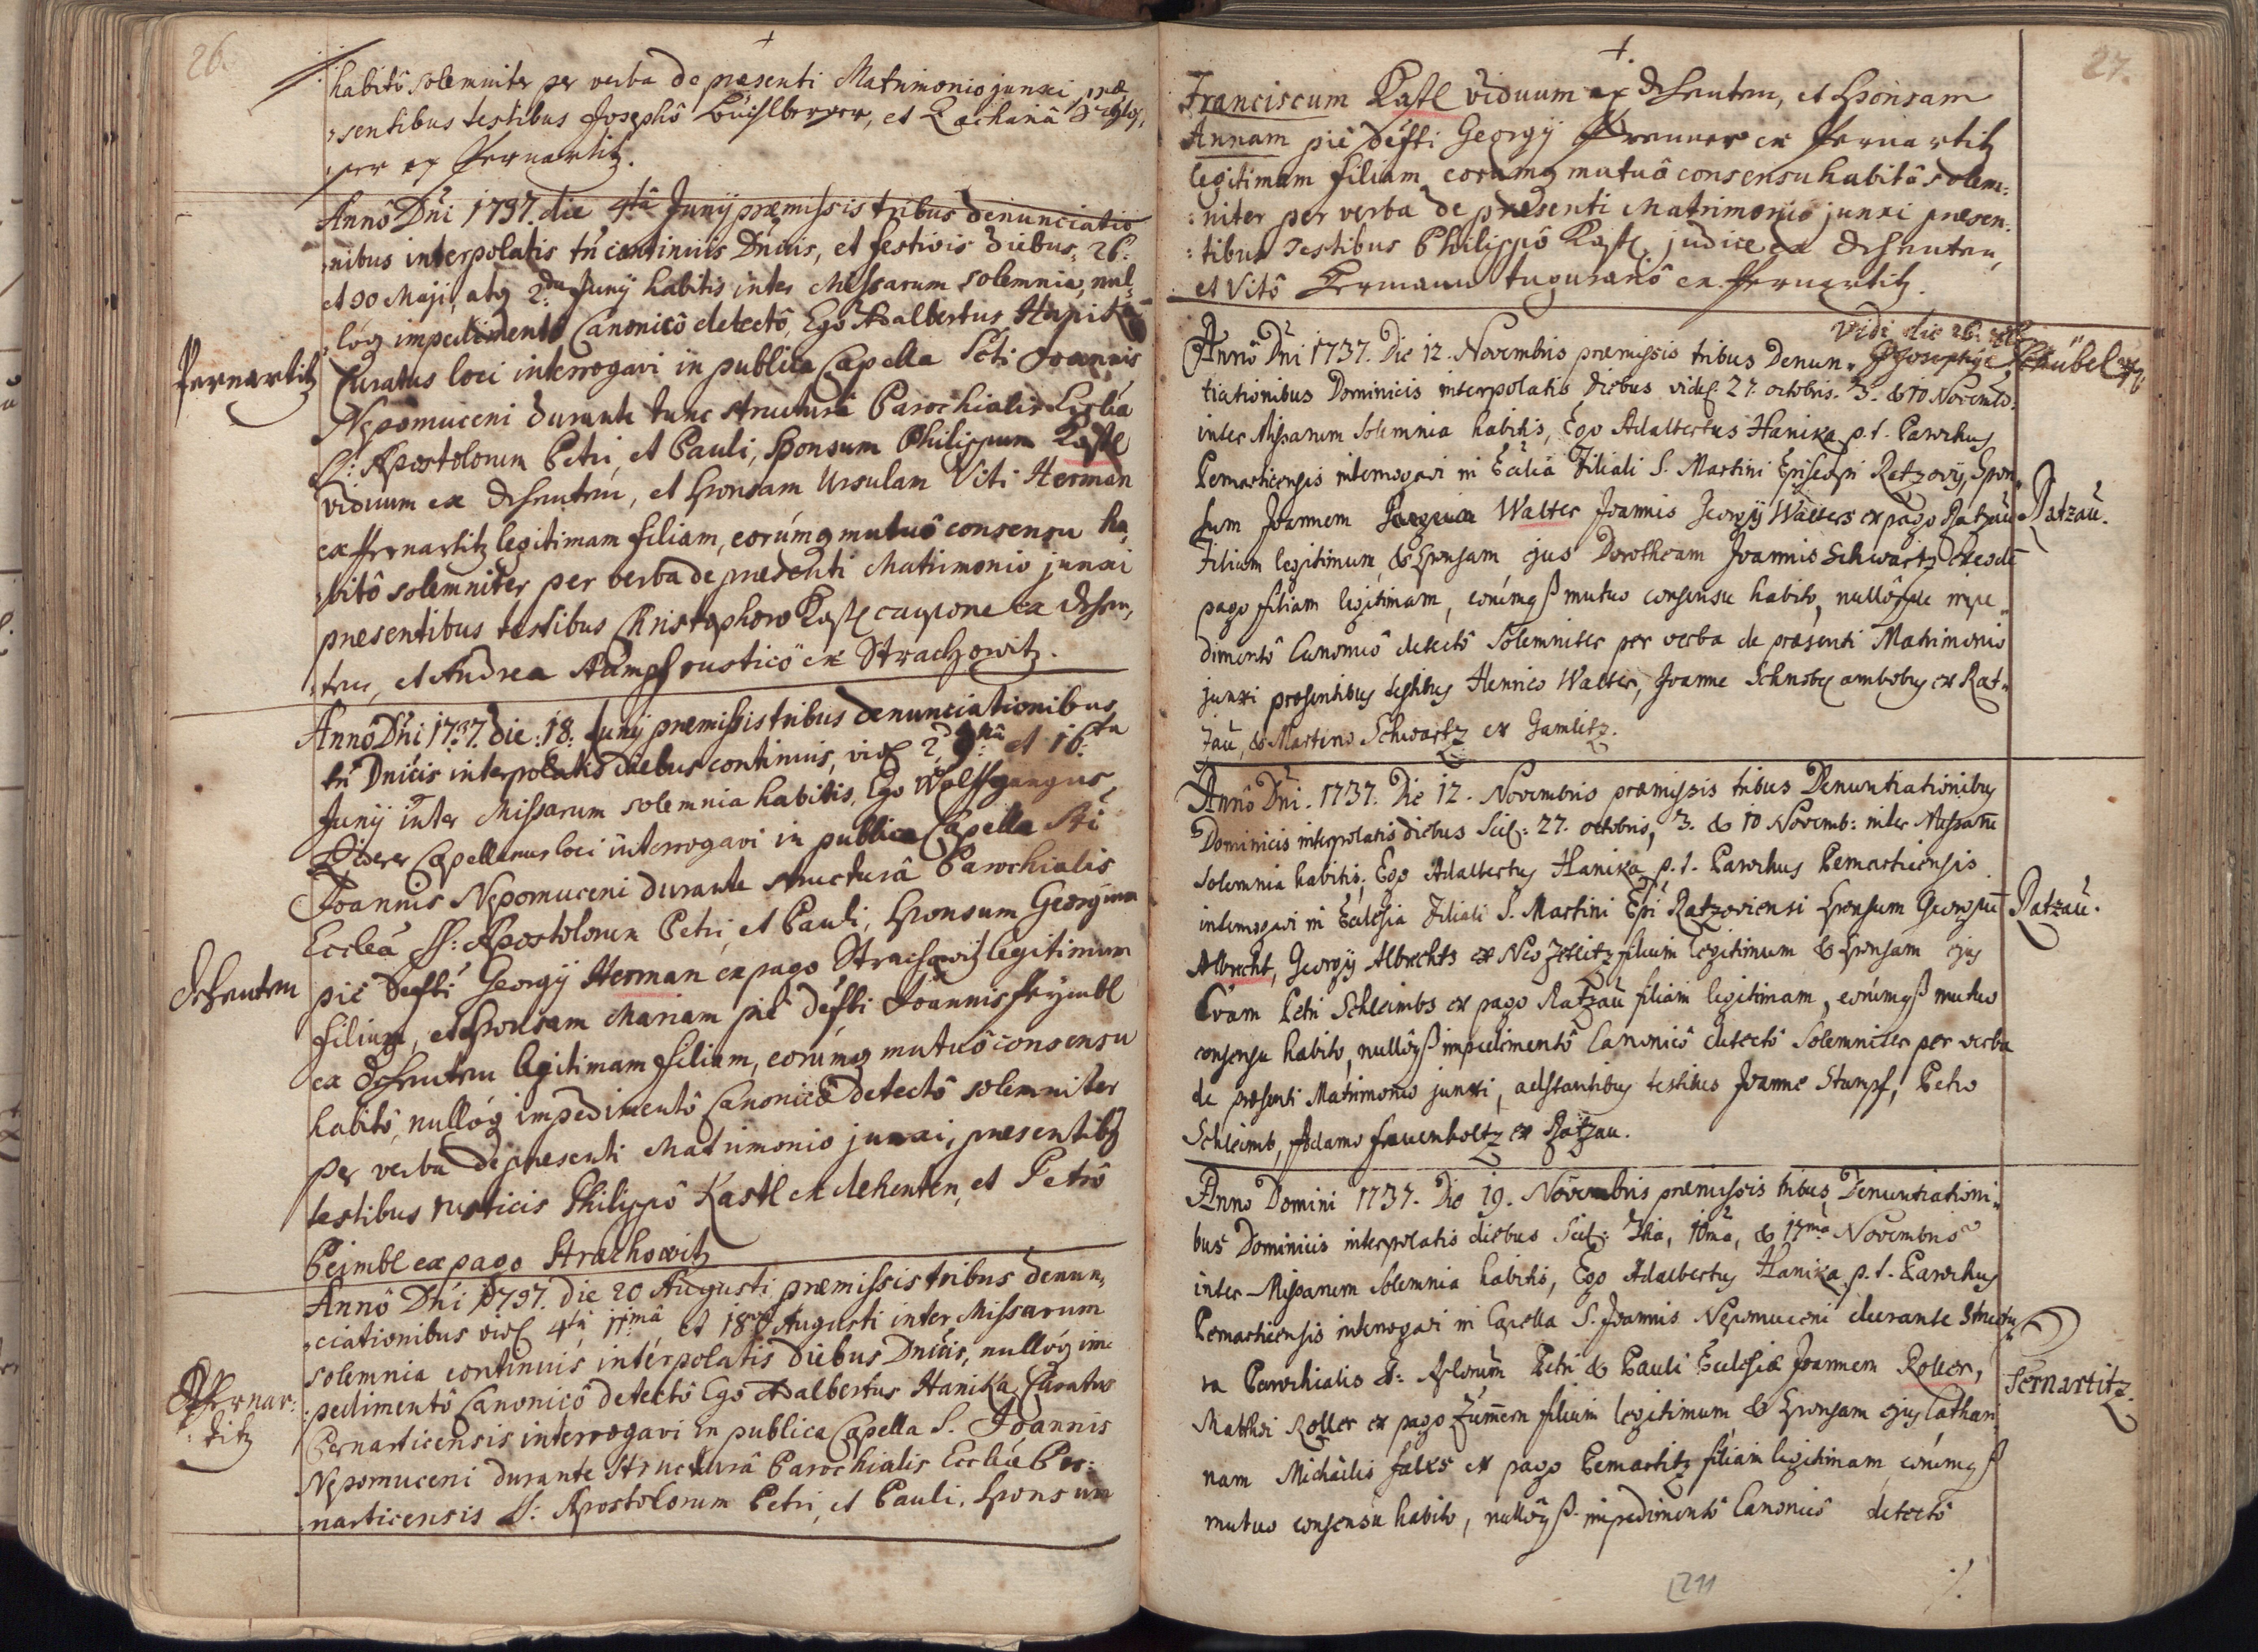 26.
habitô solemniter per verba de præsenti Matrimonio junxi præ
sentibus testibus Josephô, et Zachariâ
per ex Pernartitz.
Annô Dni 1737. die 4tâ Junij præmissis tribus denunciatio
nibus interpolatis tñ continuis Dnicis, et festivis diebus, 26.
et 30 Maji, atq 2da Junij habitis inter Missarum solemnia, nul
lôq impedimentô Canonicô detectô, Ego Adalbertus Hanika
Pernartitz
Curatus loci interrogavi in publica Capella Scti Joannis
Nepomuceni durante tunc structurâ Parochialis Eccliæ
SS: Apostolorum Petri, et Pauli, Sponsum Philippum Kastl
viduum ex Dehenten, et Sponsam Ursulam Viti Herman
ex Pernartitz legitimam filiam, eorúmq mutuô consensu ha
bitô solemniter per verba de præsenti Matrimonio junxi
præsentibus testibus Christophoro Kastl caupone ex Dehen
ten, et Andrea Stümpf rusticô ex Strachowitz.
Annô Dñi 1737. die 18. Junij præmissis tribus denunciationibus
tñ Dnicis interpolatis diebus continuis, vidl 2da 9nâ et 16ta
Junij inter Missarum solemnia habitis, Ego Wolffgangus
Capellanus loci interrogavi in publica Capella Sti
Joannis Nepomuceni durante structurâ Parochialis
Eccleæ SS: Apostolorum Petri, et Pauli, Sponsum Georgium
Dehenten
piè defti Georgij Herman ex pago Strachowitz legitimum
filium, et Sponsam Mariam piè défti Joannis Peymbl
ex Dehenten legitimam filiam, eorúmq mutuô consensu
habitô, nullôq impedimentô Canonicô detectô solemniter
per verba de præsenti Matrimonio junxi, præsentibq
testibus rusticis Philippô Kastl ex dehenten, et Petrô
Peimbl ex pago Strachowitz
Annô Dñi 1737. die 20 Augusti præmissis tribus denun
ciationibus vidl 4tâ, 11mâ, et 18va Augusti inter Missarum
solemnia continuis interpolatis diebus Dnicis, nullôq im
Pernar:
titz
pedimentô Canonicô detectô Ego Adalbertus Hanika Curatus
Pernarticensis interrogavi in publica Capella S. Joannis
Nepomuceni durante structurâ Parochialis Eccliæ Per:
narticensis SS: Apostolorum Petri, et Pauli. Sponsum
27.
Franciscum Kastl viduum ex Dehenten, et Sponsam
Annam piè défti Georgij Prenner ex Pernartitz
legitimam filiam eorúmq mutuô consensu habitô solem:
niter per verba de præsenti Matrimonio junxi præsen:
tibus Testibus Philippô Kastl judice ex Dehenten,
et Vitô Hermann tuguranô ex Pernartitz.
Vidi die 26.
Annô Dñi 1737. Die 12. Novembris præmissis tribus Denun
tiationibus Dominicis interpolatis diebus videl. 27. octobris. 3. & 10 Novemb:
inter Missarum solemnia habitis, Ego Adalbertus Hanika p.t. Parochus
Pernarticensis interrogavi in Ecclia Filiali S. Martini Episcopi Ratzovij, Spon
sum Joannem Walter Joannis Georgij Walters ex pago Ratzau
Ratzau.
Filium legitimum, & Sponsam ejus Dorotheam Joannis Schwartz ex eodē
pago filiam legitimam, eorúmq mutuo consensu habito, nullôque impe
dimentô Canonicô detectô solemniter per verba de præsenti Matrimonio
junxi præsentibus testibus Henrico Walter, Joanne ambobus ex Rat
zau, & Martino Schwartz ex Gamlitz.
Annô Dñi. 1737. Die 12. Novembris præmissis tribus Denuntiationibus
Dominicis interpolatis diebus Scil: 27. octobris, 3. & 10 Novemb: inter Missarū
solemnia habitis, Ego Adalbertus Hanika p.t. Parochus Pernarticensis
interrogavi in Ecclesia Filiali S. Martini Epi Ratzoviensi Sponsum Georgiū
Ratzau.
Albrecht, Georgij Albrechts ex Neo Zetlitz filium legitimum & Sponsam ejus
Evam Petri Schleimbs ex pago Ratzau filiam legitimam, eorúmq mutuo
consensu habito, nullôq impedimentô Canonicô detectô solemniter per verba
de præsenti Matrimonio junxi, adstantibus testibus Joanne Stumpf, Petro
Schleimb, Adamo Frauenholtz ex Ratzau.
Anno Domini 1737. Die 19. Novembris præmissis tribus Denuntiationi
bus Dominicis interpolatis diebus Scil: 3tia, 10ma, & 17ma Novembris
inter Missarum solemnia habitis, Ego Adalbertus Hanika p.t. Parochus
Pernarticensis interrogavi in Capella S. Joannis Nepomuceni durante Structu
ra Parochialis SS: Aplorum Petri & Pauli Ecclesiæ Joannem Roller,
Pernartitz.
Mathæi Roller ex pago Zummern filium legitimum & Sponsam ejus Cathari
nam Michaelis ex pago Pernartitz filiam legitimam, eorúmq
mutuo consensu habito, nullôq impedimentô Canonicô detectô
./.
211